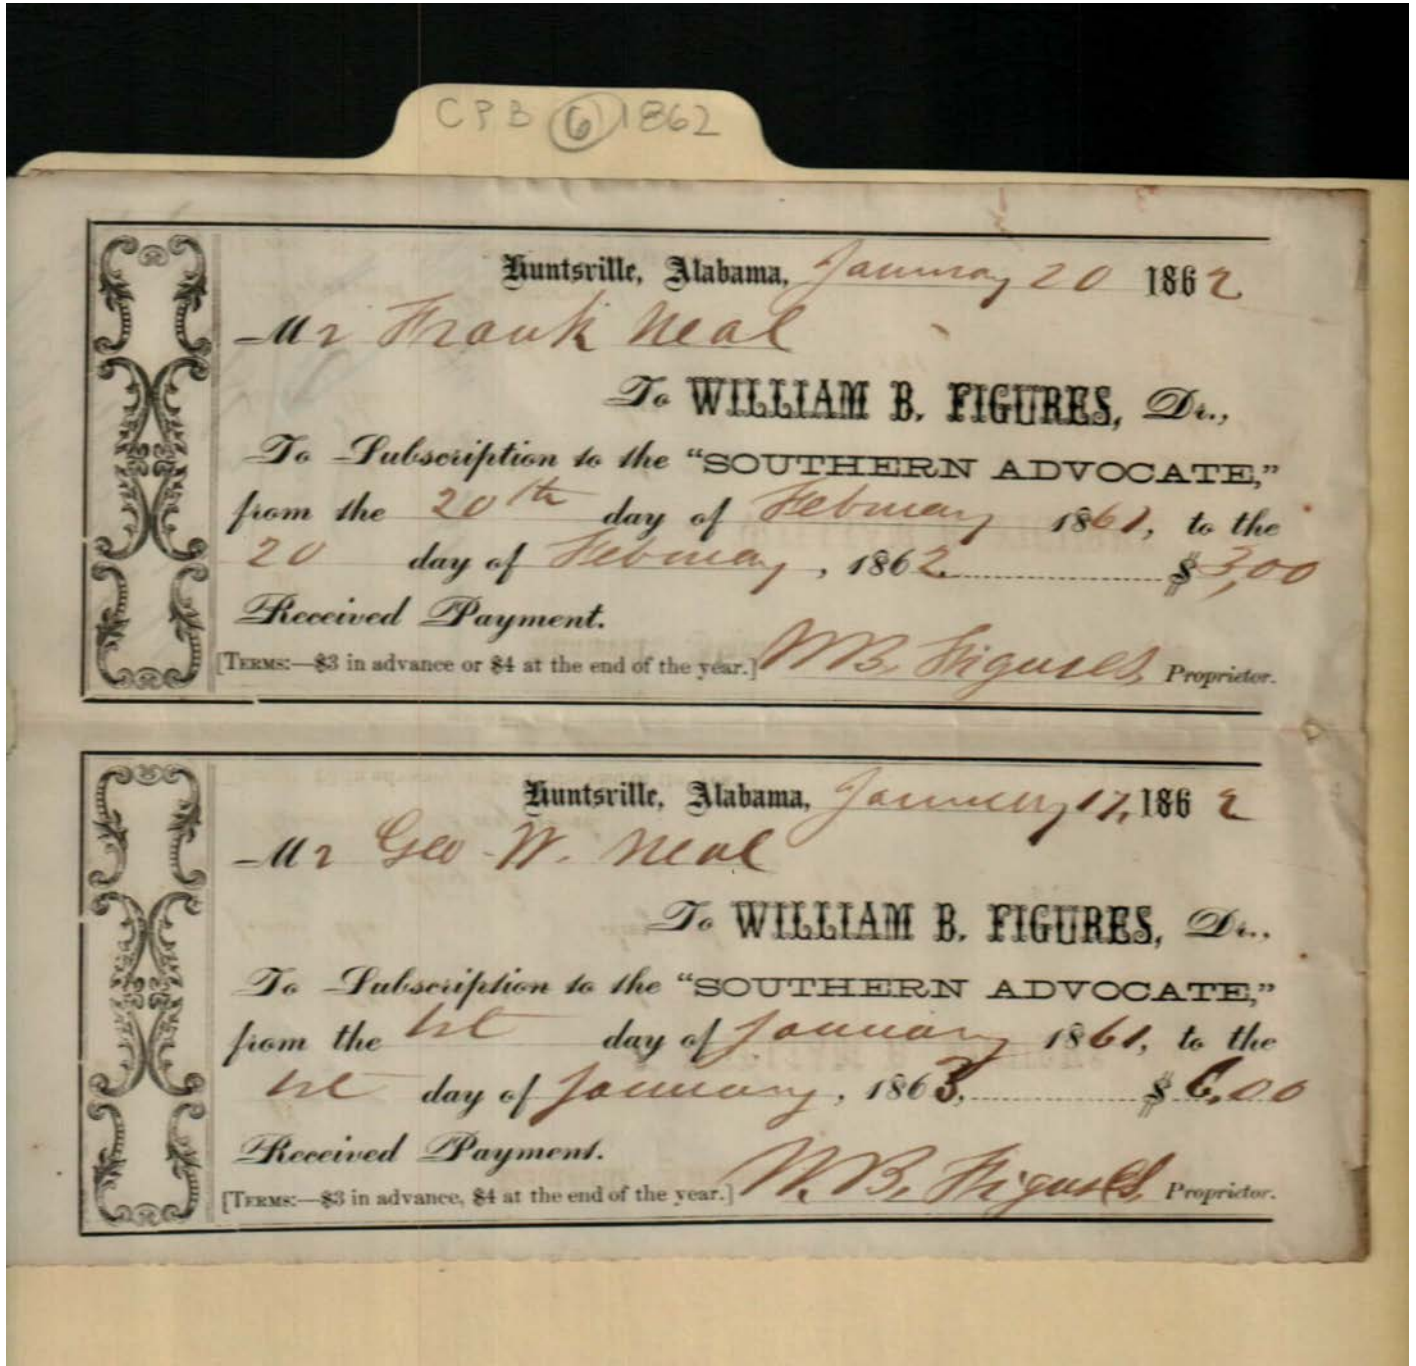 CPB 6 1862
Huntsville, Alabama, January 20 1862
Mr Frank Neal
To WILLIAM B. FIGURES, Dr.,
To Subscription to the "SOUTHERN ADVOCATE,"
from the 20th day of February 1861, to the
20 day of February, 1862. $3,00
Received Payment.
[TERMS:—$3 in advance or $4 at the end of the year.] W B. Figures Proprietor.
Huntsville, Alabama, January 17, 1862
Mr Geo W. Neal
To WILLIAM B. FIGURES, Dr.,
To Subscription to the "SOUTHERN ADVOCATE,"
from the 1st day of January 1861, to the
1st day of January, 1863, $6.00
Received Payment.
[TERMS:—$3 in advance, $4 at the end of the year.] W. B. Figures Proprietor.